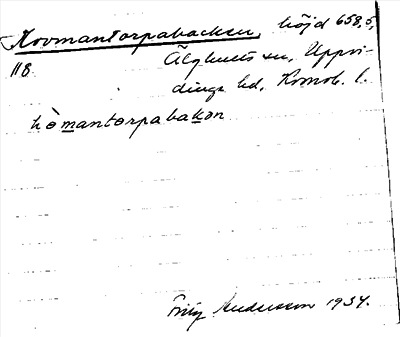 Hovmantorpabacken, höjd 658,5,
118 Älghults sn, Uppvi-
dinge hd, Kronob. l.
hòmantorpabakən
Fritz Andersson 1934.